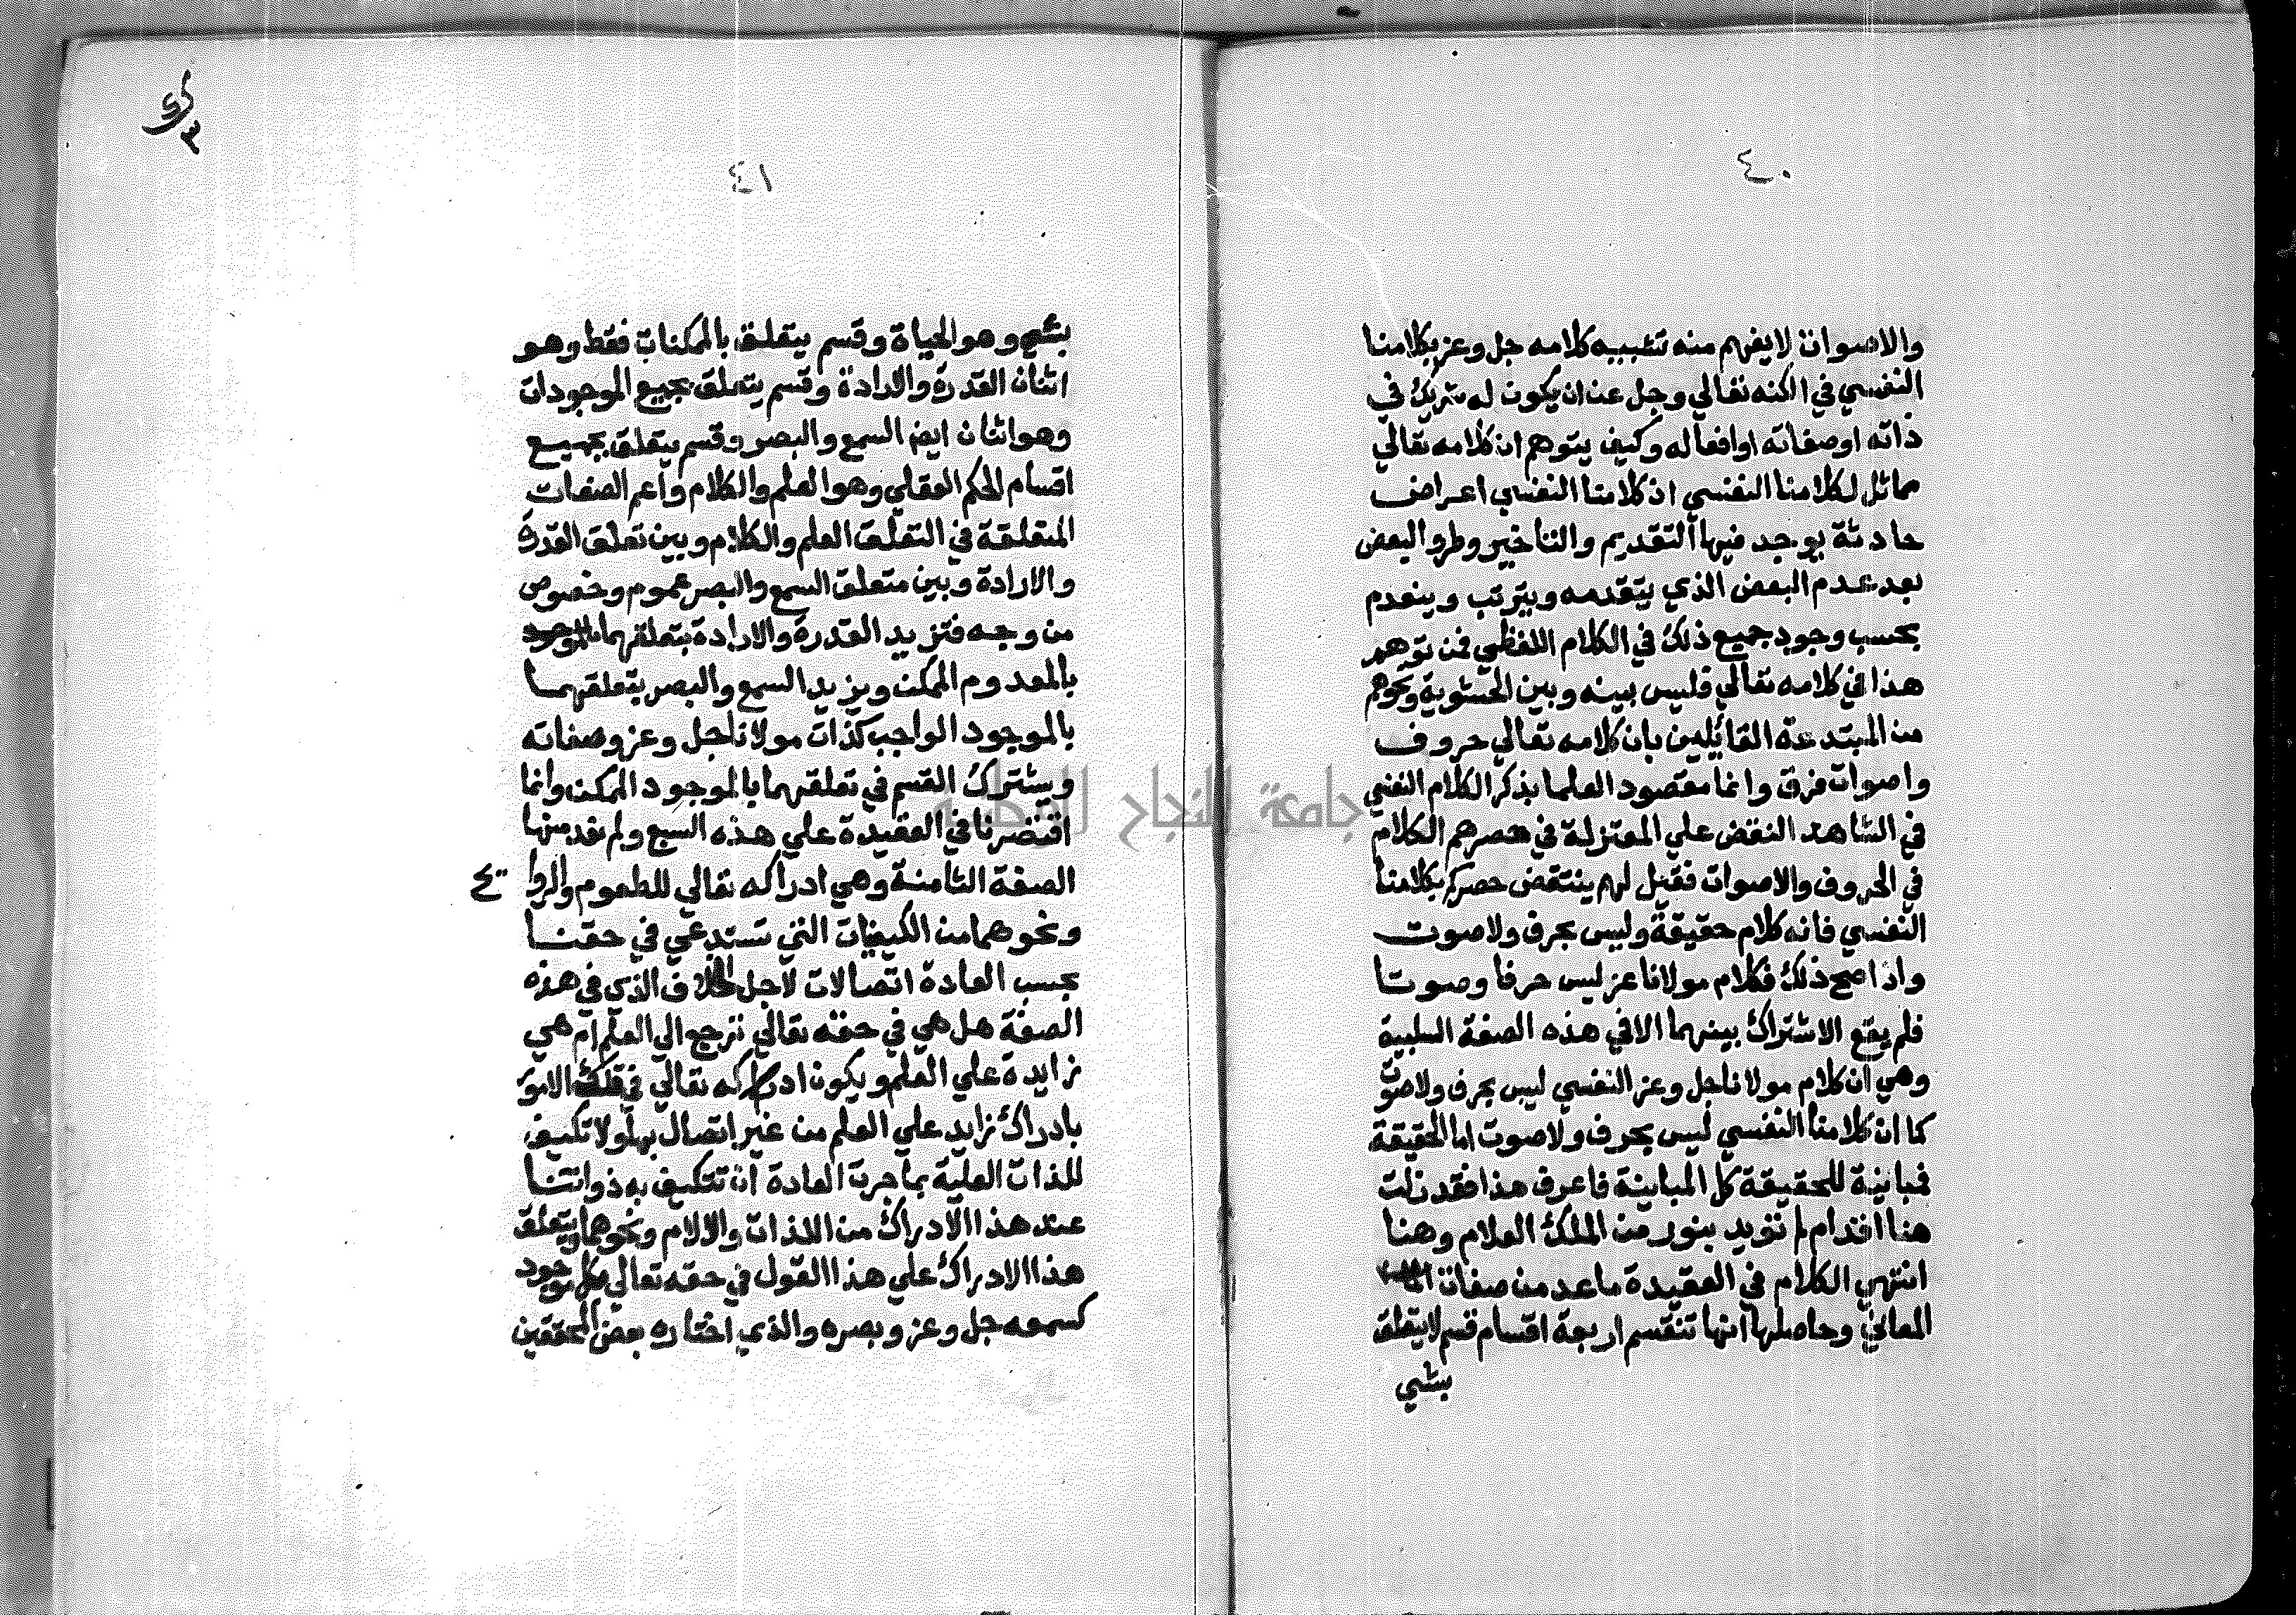 ٤٠
والاصوات لا يفهم منه تشبيه كلامه جل وعز بكلامنا
النفسي في الكنه تعالي وجل عن ان يكون له شريك في
ذاته او صفاته او افعاله وكيف يتوهم ان كلامه تعالي
مماثل لكلامنا النفسي ان كلامنا النفسي اعراض
حادثة يوجد فيها التقديم والتاخير وطرو البعض
بعد عدم البعض الذي يتقدمه ويترتب وينعدم
بحسب وجود جميع ذلك في الكلام اللفظي فمن توهم
هذا في كلامه تعالي فليس بينه وبين الحشوية ونحوهم
من المبتدعة القائلين بان كلامه تعالي حروف
واصوات فرق وانما مقصود العلما بذكر الكلام النفسي
في الشاهد النقض علي المعتزلة في حصرهم الكلام
في الحروف والاصوات فقيل لهم ينتقض حصركم بكلامنا
النفسي فانه كلام حقيقة وليس بحرف ولا صوت
واذا صح ذلك فكلام مولانا عز ليس حرفا وصوتا
فلم يقع الاشتراك بينهما الا في هذه الصفة السلبية
وهي ان كلام مولانا جل وعز النفسي ليس بحرف ولا صوت
كما ان كلامنا النفسي ليس بحرف ولا صوت اما الحقيقة
فمباينة للحقيقة كل المباينة فاعرف هذا فقد زلت
هنا اقدام لم تويد بنور من الملك العلام وهنا
انتهي الكلام في العقيدة ما عد من صفات
المعاني وحاصلها انها تنقسم اربعة اقسام قسم لا يتعلق
بشي
٤١
بشي وهو الحياة وقسم يتعلق بالممكنات فقط وهو
اثنان القدرة والارادة وقسم يتعلق بجميع الموجودات
وهو اثنان ايض السمع والبصر وقسم يتعلق بجميع
اقسام الحكم العقلي وهو العلم والكلام واعم الصفات
المتعلقة في التعلق العلم والكلام وبين تعلق القدرة
والارادة وبين متعلق السمع والبصر عموم وخصوص
من وجه فتزيد القدرة والارادة بتعلقهما
بالمعدوم الممكن ويزيد السمع والبصر بتعلقهما
بالموجود الواجب كذات مولانا جل وعز وصفاته
ويشترك القسم في تعلقهما بالموجود الممكن وانما
اقتضرنا في العقيدة علي هذه السبع ولم نعد منها
الصفة الثامنة وهي ادراكه تعالي للطعوم والروا ئح
ونحوهما من الكيفيات التي تستدعي في حقنا
بحسب العادة اتصالات لاجل الخلاف الذي في هذه
الصفة هل هي في حقه تعالي ترجع الي العلم ام هي
زايدة علي العلم ويكون ادراكه تعالي في تلك الامور
بادراك زايد علي العلم من غير اتصال بها ولا تكيف
للذات العلية بما جرت العادة ان تتكيف به ذواتنا
عند هذا الادراك من اللذات والالام ونحوهما ويتعلق
هذا الادراك علي هذا القول في حقه تعالي بكل موجود
كسمعه جل وعز وبصره والذي اختاره بعض المحققين
جامعة النجاح الوطنية